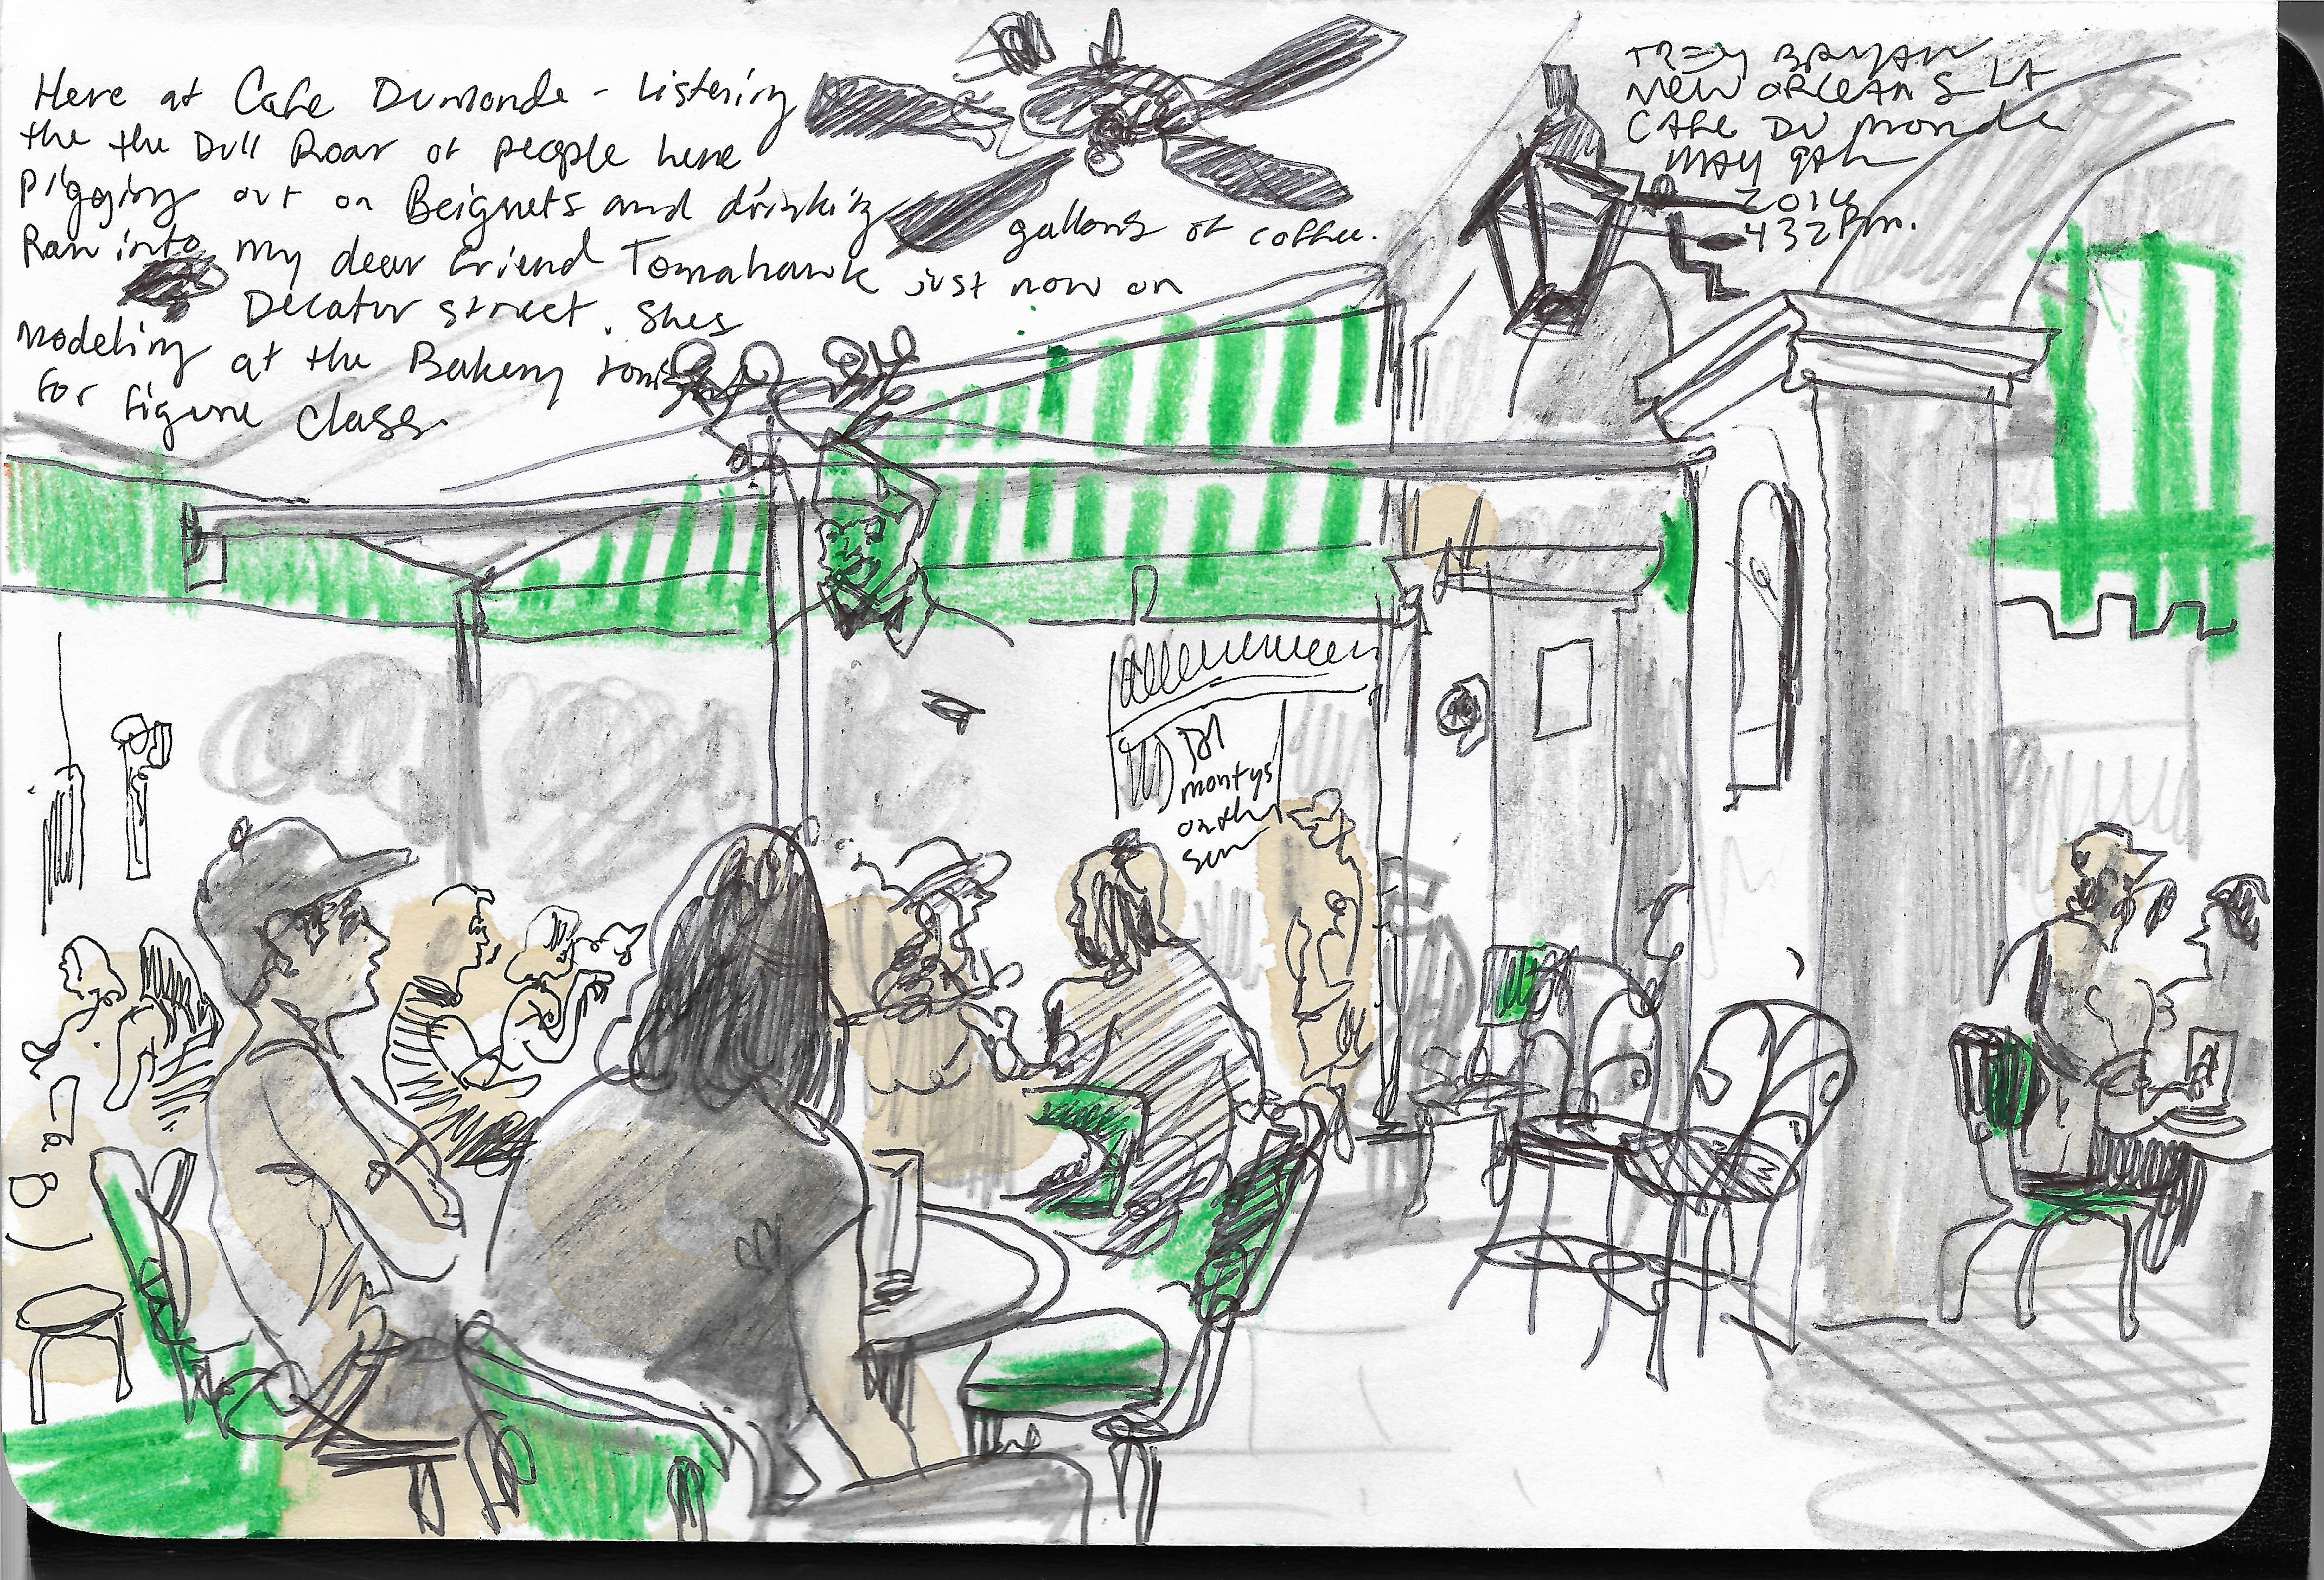 Here at Cafe Dumonde - Listening
the the Dull Roar of people here
pigging out on Beignets and drinking
gallons of coffee.
Ran into my dear friend Tomahawk just now on
Decatur street. Shes
modeling at the Bakery
for figure class.
TREY BRYAN
NEW ORLEANS LA
CAFE DU MONDE
MAY 9th
432 Pm.
montys
on the